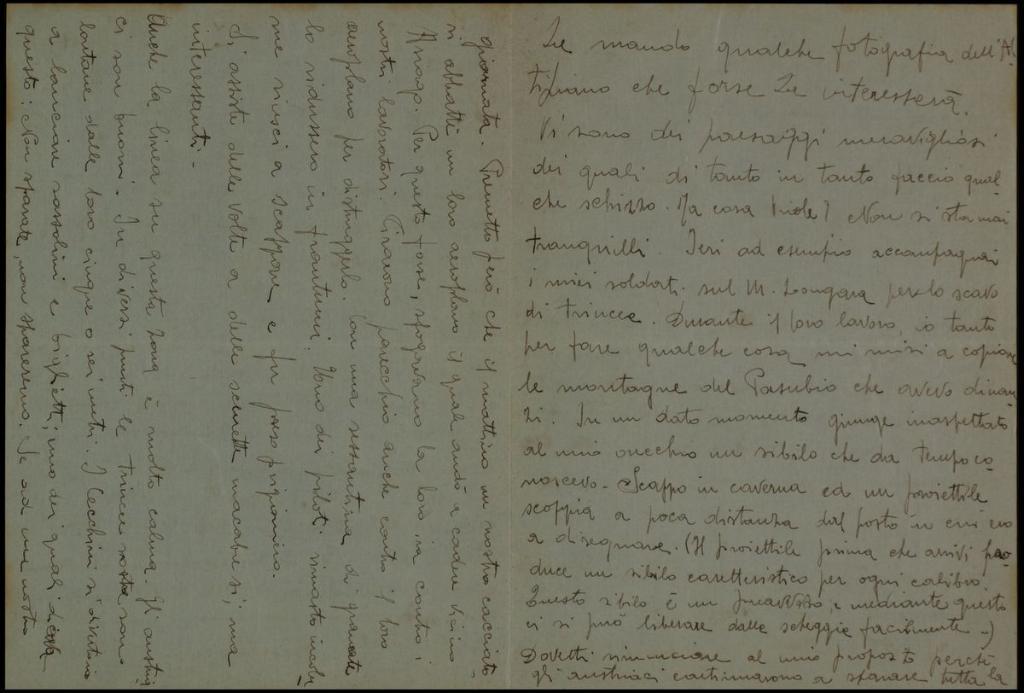 Le mando qualche fotografia dell'Al-
tipiano che forse Le interesserà.
Vi sono dei paesaggi meravigliosi
dei quali di tanto in tanto faccio qual-
che schizzo. Ma cosa vuole? Non si sta mai
tranquilli. Ieri ad esempio accompagnai
i miei soldati sul M. Longara per lo scavo
di trincee. Durante il loro lavoro, io tanto
per fare qualche cosa mi misi a copiare
le montagne del Pasubio che avevo dinan-
zi. In un dato momento giunge inaspettato
al mio orecchio un sibilo che da tempo co-
noscevo. Scappo in caverna ed un proiettile
scoppia a poca distanza dal posto in cui ero
a disegnare. (Il proiettile prima che arrivi pro-
duce un sibilo caratteristico per ogni calibro.
Questo sibilo è un preavviso, e mediante questo
ci si può liberare dalle scheggie facilmente.)
Dovetti rinunciare al mio proposito perchè
gli austriaci continuarono a sparare tutta la
giornata. Premetto però che il mattino un nostro caccia
si abbattè un loro aeroplano il quale andò a cadere vicino
Asiago. Per questo forse, sfogavano la loro ira contro i
nostri lavoratori. Tirarono parecchio anche contro il loro
aeroplano per distruggerlo. Con una sessantina di granate
lo ridussero in frantumi. Uno dei piloti rimasto incolu-
me riuscì a scappare e fu fatto prigioniero.
Si assiste delle volte a delle scenette macabre sì, ma
interessanti.
Anche la linea su questa zona è molto calma. Gli austriaci
ci son buoni. In diversi punti le trincee nostre sono
lontane dalle loro cinque o sei metri. I Cecchini si divertono
a lanciar sassolini e biglietti, uno dei quali diceva
questo: Non sparate, non spareremo. Se ad un nostro